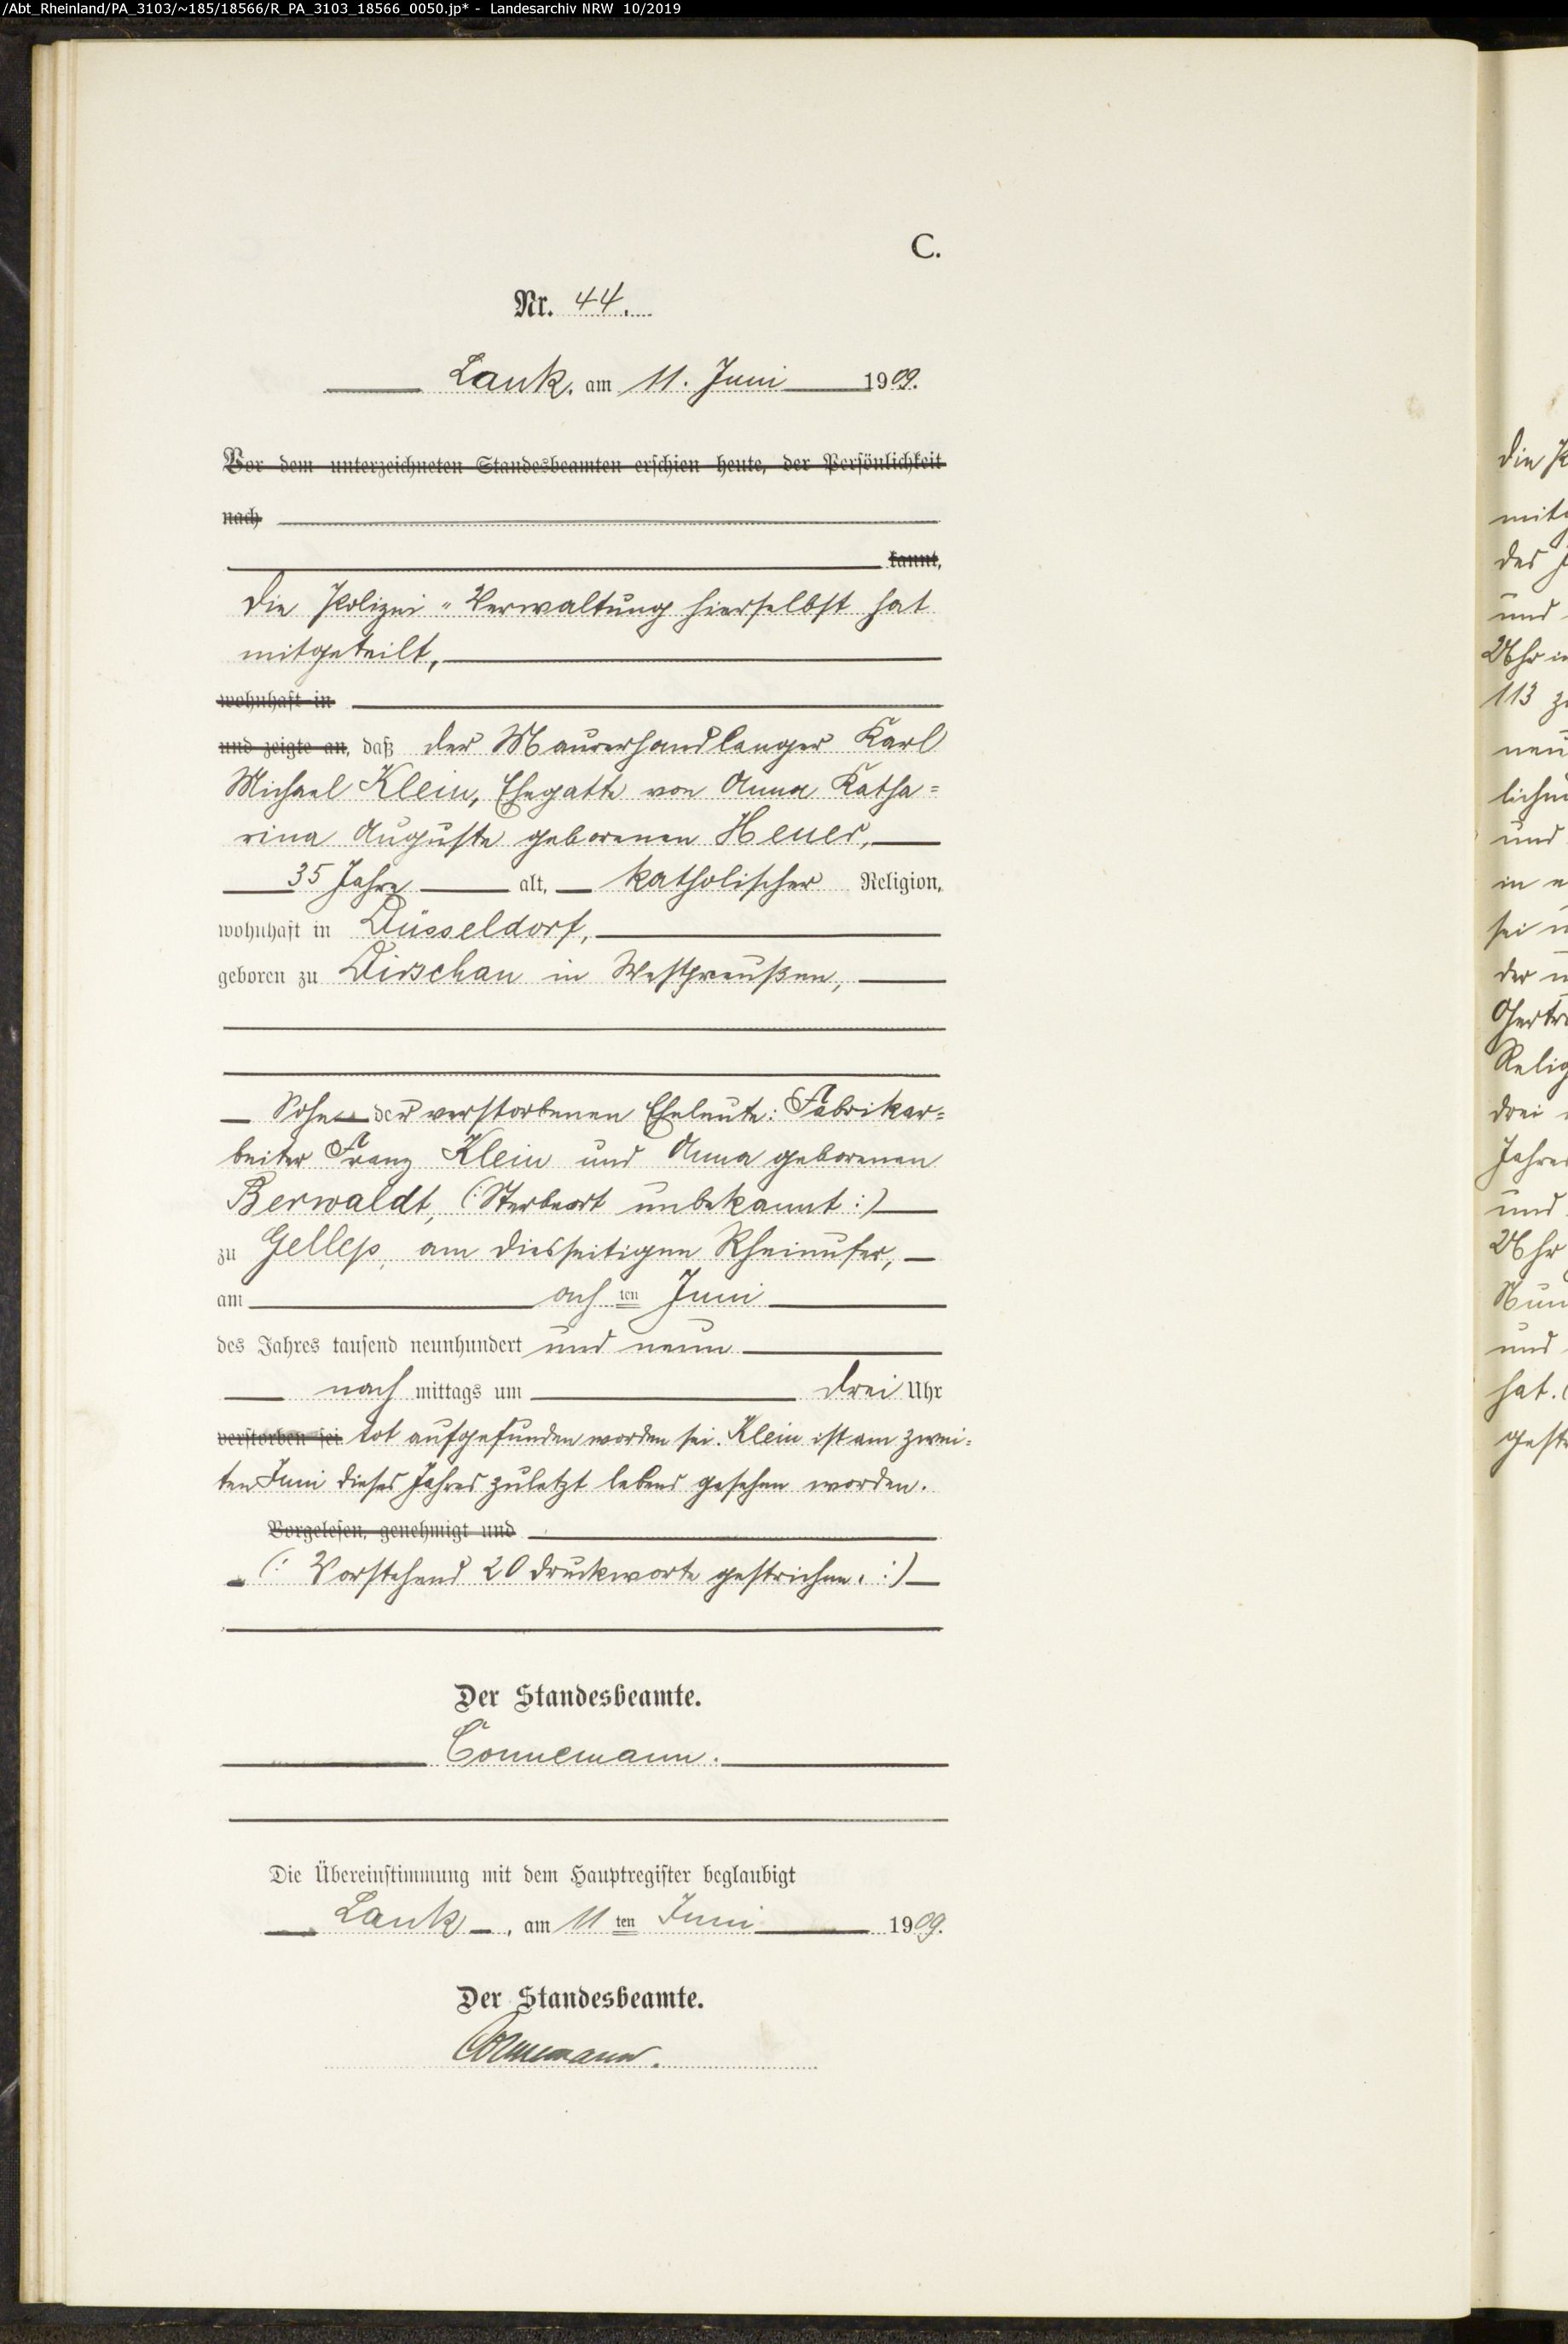 /Abt_Rheinland/PA_3103/~185/18566/R_PA_3103_18566_0050.jp* - Landesarchiv NRW 10/2019
C.
Nr. 44.
Lank, am 11. Juni 1909.
Vor dem unterzeichneten Standesbeamten erschien heute, der Persönlichkeit
nach
kannt,
Die Polizei-Verwaltung hierselbst hat
mitgeteilt,
wohnhaft in
und zeigte an, daß der Maurerhandlanger Karl
Michael Klein, Ehegatte von Anna Katha=
rina Auguste geborenen Heuer,
35 Jahre alt, katholischer Religion,
wohnhaft in Düsseldorf,
geboren zu Dirschau in Westpreußen,
Sohn der verstorbenen Eheleute: Fabrikar=
beiter Franz Klein und Anna geborenen
Berwaldt, (: Sterbeort unbekannt :)
zu Gellep, am diesseitigen Rheinufer,
am ach ten Juni
des Jahres tausend neunhundert und neun
nach mittags um drei Uhr
verstorben sei tot aufgefunden worden sei. Klein ist am zwei=
ten Juni dieses Jahres zuletzt lebend gesehen worden.
Vorgelesen, genehmigt und
(: Vorstehend 20 Druckworte gestrichen. :)
Der Standesbeamte.
Connemann.
Die Übereinstimmung mit dem Hauptregister beglaubigt
Lank, am 11 ten Juni 1909.
Der Standesbeamte.
Connemann.
Die
des
und
Uhr
113
und
in
sei
der
Relig
drei
Jahres
und
Uhr
und
hat.